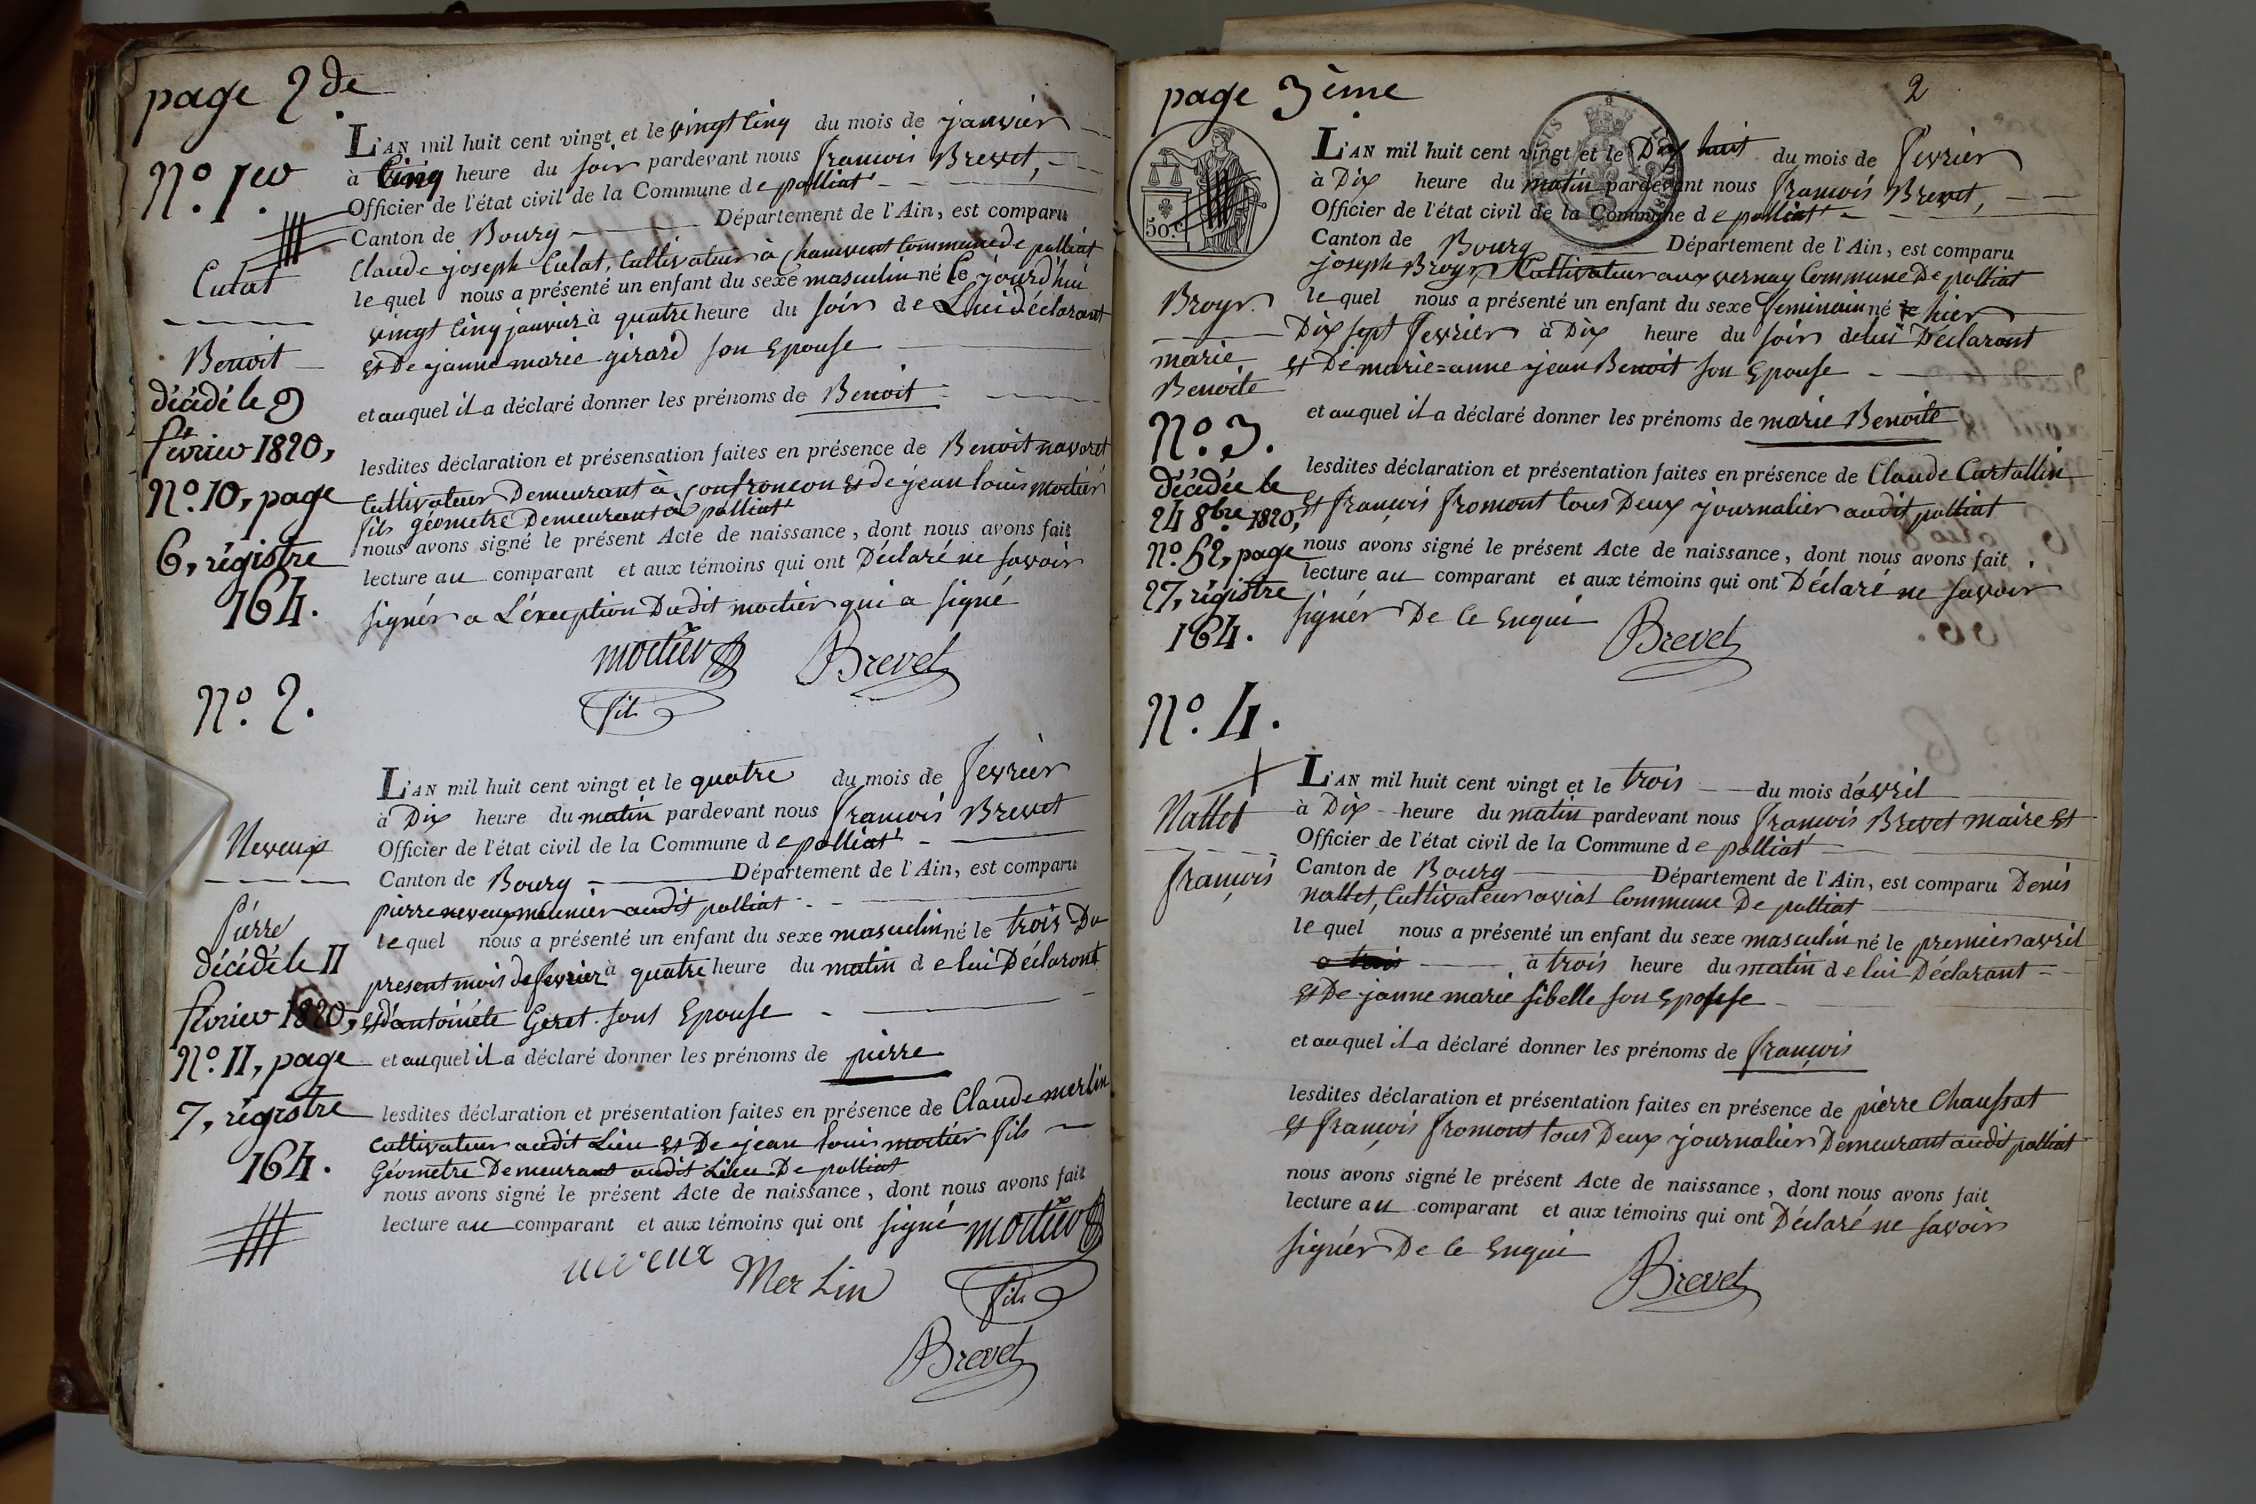 page 2de
N.o 1.er
Cutat
Benoit
décédé le 9
février 1820,
N.o 10, page
6, régistre
164.
L'AN mil huit cent vingt et le vingt cinq du mois de janvier
à cinq heure du soir pardevant nous françois Brevet,
Officier de l'état civil de la Commune de polliat
Canton de Bourg Département de l'Ain, est comparu
Claude joseph Cutat, Cultivateur à Chanvent Commune de polliat
lequel nous a présenté un enfant du sexe masculin né Ce jourd'hui
vingt cinq janvier à quatre heure du soir de Lui déclarant
et De janne marie girard son Epouse
et auquel il a déclaré donner les prénoms de Benoit
lesdites déclaration et présensation faites en présence de Benoit navoret
Cultivateur Demeurant à Confrancon et de jean louis mortier
fils géometre Demeurant à polliat
nous avons signé le présent Acte de naissance, dont nous avons fait
lecture au comparant et aux témoins qui ont Déclaré ne savoir
signér a L'éxception Dudit mortier qui a signé
mortier
fils
Brevet
N.o 2.
Neveux
Pierre
décédé le 11
février 1820,
N.o 11, page
7, régistre
164.
L'AN mil huit cent vingt et le quatre du mois de fevrier
à Dix heure du matin pardevant nous françois Brevet
Officier de l'état civil de la Commune de polliat
Canton de Bourg Département de l'Ain, est comparu
pierre neveux meunier audit polliat
lequel nous a présenté un enfant du sexe masculin né le trois Du
present mois de fevrier à quatre heure du matin de lui Déclarant
et d'antoinéte Geret sont Epouse
et auquel il a déclaré donner les prénoms de pierre
lesdites déclaration et présentation faites en présence de Claude merlin
Cultivateur audit Lieu et De jean louis mortier fils
Géometre Demeurant audit Lieu De polliat
nous avons signé le présent Acte de naissance, dont nous avons fait
lecture au comparant et aux témoins qui ont signé
mortier
neveux
Merlin
fils
Brevet
page 3ème
2
50.c
Broyr
marie
Benoite
N.o 3.
décédée le
24 8bre 1820,
N.o 52, page
27, régistre
164.
L'AN mil huit cent vingt et le Dix huit du mois de fevrier
à Dix heure du matin pardevant nous françois Brevet,
Officier de l'état civil de la Commune de polliat
Canton de Bourg Département de l'Ain, est comparu
joseph Broyr, Cultivateur aux vernay Commune De polliat
lequel nous a présenté un enfant du sexe feminain né le hier
Dix sept fevrier à Dix heure du soir de lui Déclarant
et De marie=anne jean Benoit son Epouse
et auquel il a déclaré donner les prénoms de marie Benoite
lesdites déclaration et présentation faites en présence de Claude Curtallin
et françois fromont tous Deux journalier audit polliat
nous avons signé le présent Acte de naissance, dont nous avons fait
lecture au comparant et aux témoins qui ont Déclaré ne savoir
signér De Ce Enqui
Brevet
N.o 4.
Nallet
françois
L'AN mil huit cent vingt et le trois du mois d'avril
à Dix heure du matin pardevant nous françois Brevet maire et
Officier de l'état civil de la Commune de polliat
Canton de Bourg Département de l'Ain, est comparu Denis
nallet, Cultivateur a viat Commune De polliat
lequel nous a présenté un enfant du sexe masculin né le premier avril
a trois à trois heure du matin de lui Déclarant
et De janne marie sibelle son Epouse
et auquel il a déclaré donner les prénoms de françois
lesdites déclaration et présentation faites en présence de pierre Chaussat
et françois fromont tous Deux journalier Demeurant audit polliat
nous avons signé le présent Acte de naissance, dont nous avons fait
lecture au comparant et aux témoins qui ont Déclaré ne savoir
signér De Ce Enqui
Brevet